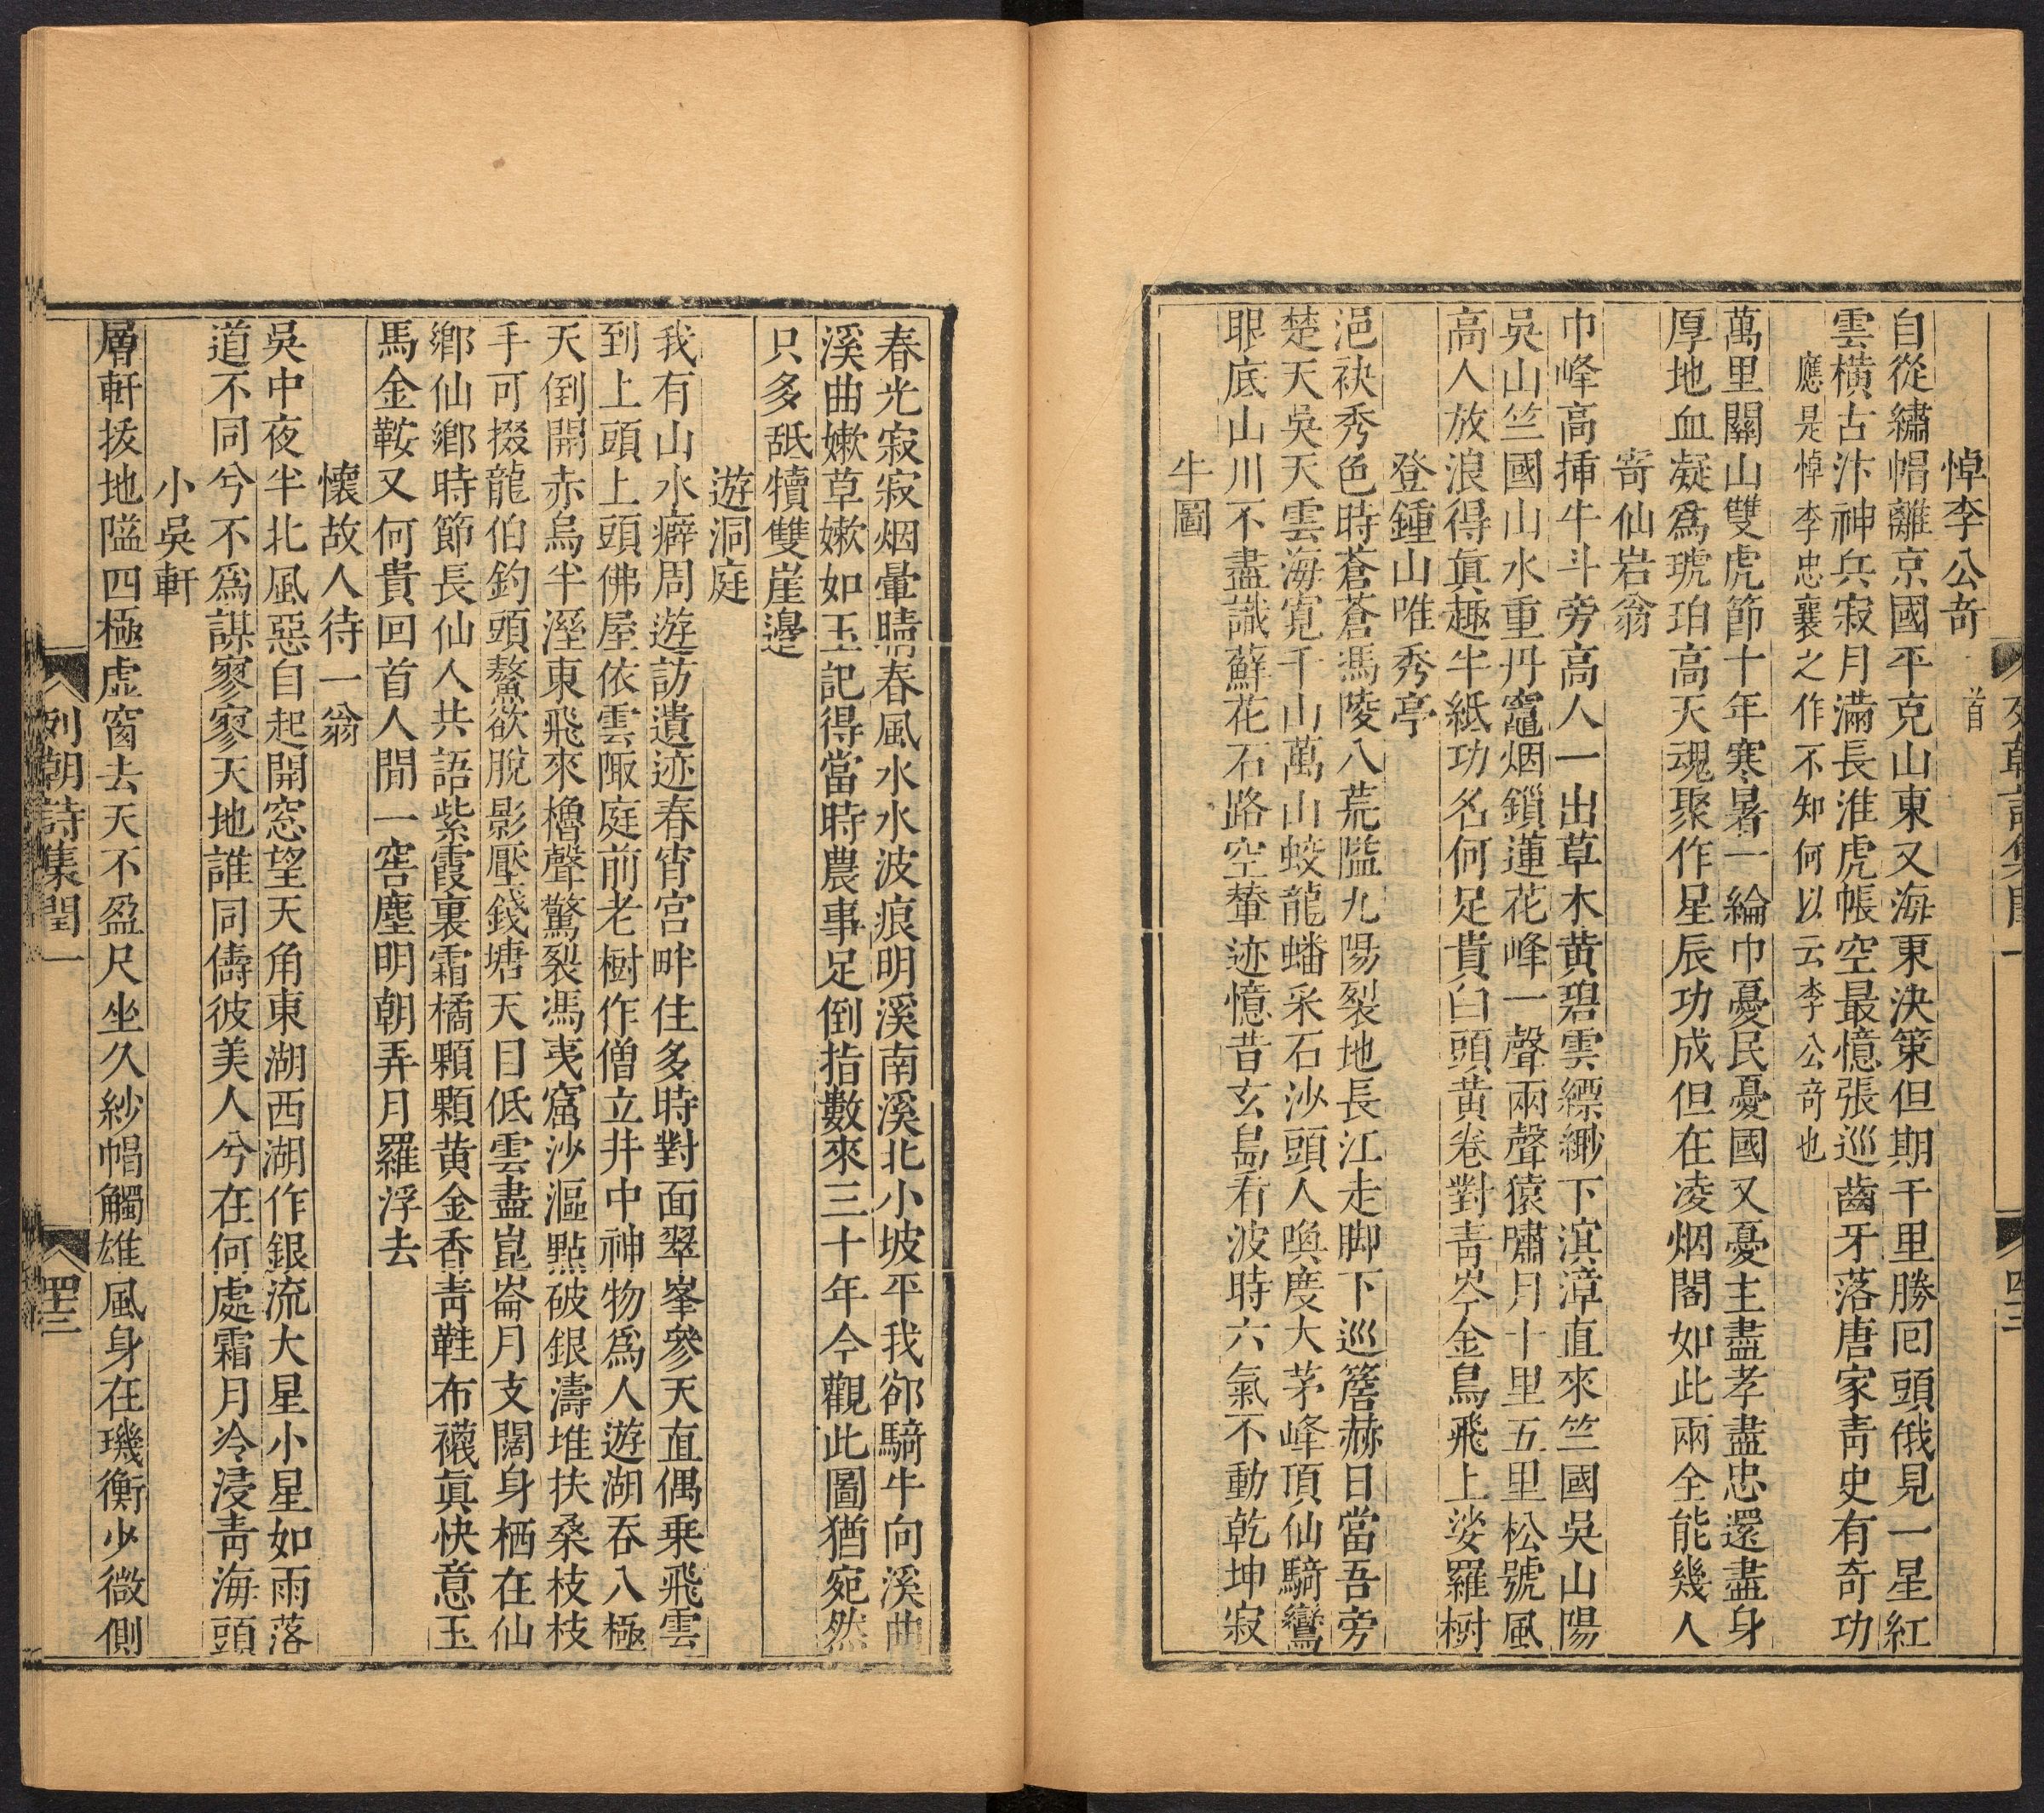 列朝詩集閏一
四三
悼李公奇 首
自從繡帽離京國平克山東又海東決策但期千里勝囘頭俄見一星紅
雲橫古汴神兵寂月滿長淮虎帳空最憶張巡齒牙落唐家靑史有奇功
應是悼李忠襄之作不知何以云李公奇也
萬里關山雙虎節十年寒暑一綸巾憂民憂國又憂主盡孝盡忠還盡身
厚地血凝爲琥珀高天魂聚作星辰功成但在凌烟閣如此兩全能幾人
寄仙岩翁
巾峰高揷牛斗旁高人一出草木黄碧雲縹緲下滨漳直來竺國吳山陽
吳山竺國山水重丹竈烟鎖蓮花峰一聲兩聲猿嘯月十里五里松號風
高人放浪得眞趣半紙功名何足貴白頭黄卷對靑岑金烏飛上娑羅樹
登鍾山唯秀亭
浥袂秀色時蒼蒼馮陵八荒隘九陽裂地長江走脚下巡簷赫日當吾旁
楚天吳天雲海寛千山萬山蛟龍蟠采石沙頭人喚度大茅峰頂仙騎鸞
眼底山川不盡識蘚花石路空輦迹憶昔玄島看波時六氣不動乾坤寂
牛圖
春光寂寂烟暈晴春風水水波痕明溪南溪北小坡平我郤騎牛向溪曲
溪曲嫰草嫰如玉記得當時農事足倒指數來三十年今觀此圖猶宛然
只多舐犢雙崖邊
遊洞庭
我有山水癖周遊訪遺迹春宵宫畔住多時對面翠峯參天直偶乗飛雲
到上頭上頭佛屋依雲陬庭前老樹作僧立井中神物爲人遊湖吞八極
天倒開赤烏半溼東飛來櫓聲驚裂馮夷窟沙漚㸃破銀濤堆扶桑枝枝
手可掇龍伯釣頭鰲欲脫影壓錢塘天日低雲盡崑崙月支闊身栖在仙
鄕仙鄕時節長仙人共語紫霞裏霜橘顆顆黄金香靑鞋布襪眞快意玉
馬金鞍又何貴回首人間一窖塵明朝弄月羅浮去
懷故人待一翁
吳中夜半北風惡自起開窓望天角東湖西湖作銀流大星小星如雨落
道不同兮不爲謀寥寥天地誰同儔彼美人兮在何處霜月冷浸靑海頭
小吳軒
層軒拔地隘四極虛窗去天不盈尺坐久紗帽觸雄風身在璣衡少微側
列朝詩集閏一
四三